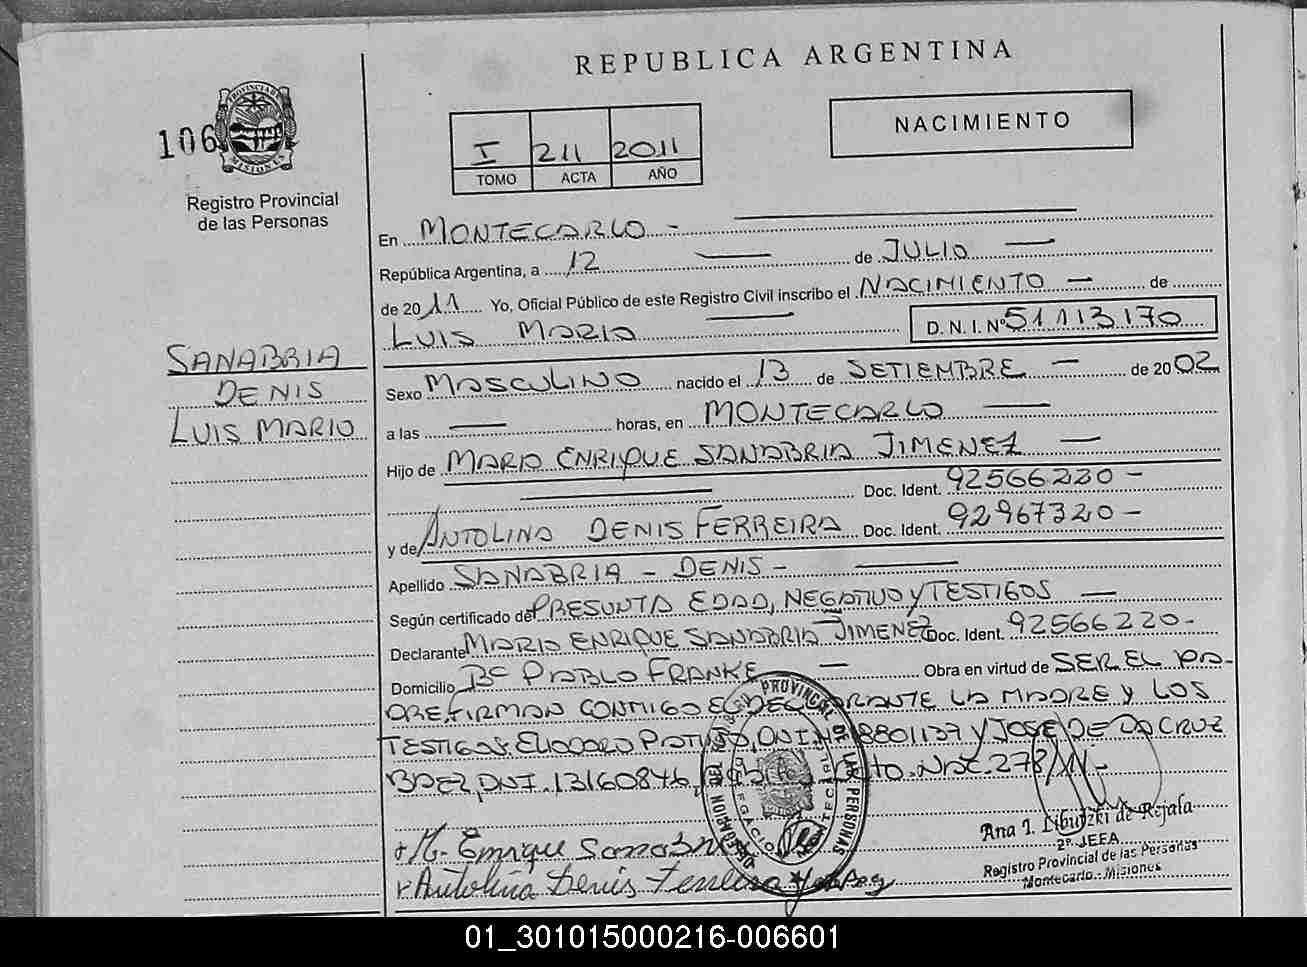 REPUBLICA ARGENTINA
106
PROVINCIA DE MISIONES
Registro Provincial
de las Personas
I 211 2011
TOMO ACTA AÑO
NACIMIENTO
SANABRIA
DENIS
LUIS MARIO
En MONTECARLO -
República Argentina, a 12 de JULIO
de 2011 Yo, Oficial Público de este Registro Civil inscribo el NACIMIENTO - de
LUIS MARIO D.N.I. Nº 51113170
Sexo MASCULINO nacido el 13 de SETIEMBRE - de 2002
a las horas, en MONTECARLO
Hijo de MARIO ENRIQUE SANABRIA JIMENEZ -
Doc. Ident. 92566220 -
y de ANTOLINA DENIS FERREIRA Doc. Ident. 92967320 -
Apellido SANABRIA - DENIS -
Según certificado de PRESUNTA EDAD, NEGATIVO Y TESTIGOS
Declarante MARIO ENRIQUE SANABRIA JIMENEZ Doc. Ident. 92566220-
Domicilio Bº PABLO FRANKE - Obra en virtud de SER EL PA-
DRE. FIRMAN CONMIGO EL DECLARANTE LA MADRE Y LOS
TESTIGOS: ELIODORO DNI Nº 18801137 Y JOSE DE LA CRUZ
BAEZ, DNI. 13160846, 278/11.-
M. Enrique Sanabria
Antolina Denis Ferreira
Ana I. Libutzki de Rejala
2º JEFA
Registro Provincial de las Personas
Montecarlo - Misiones
01_301015000216-006601